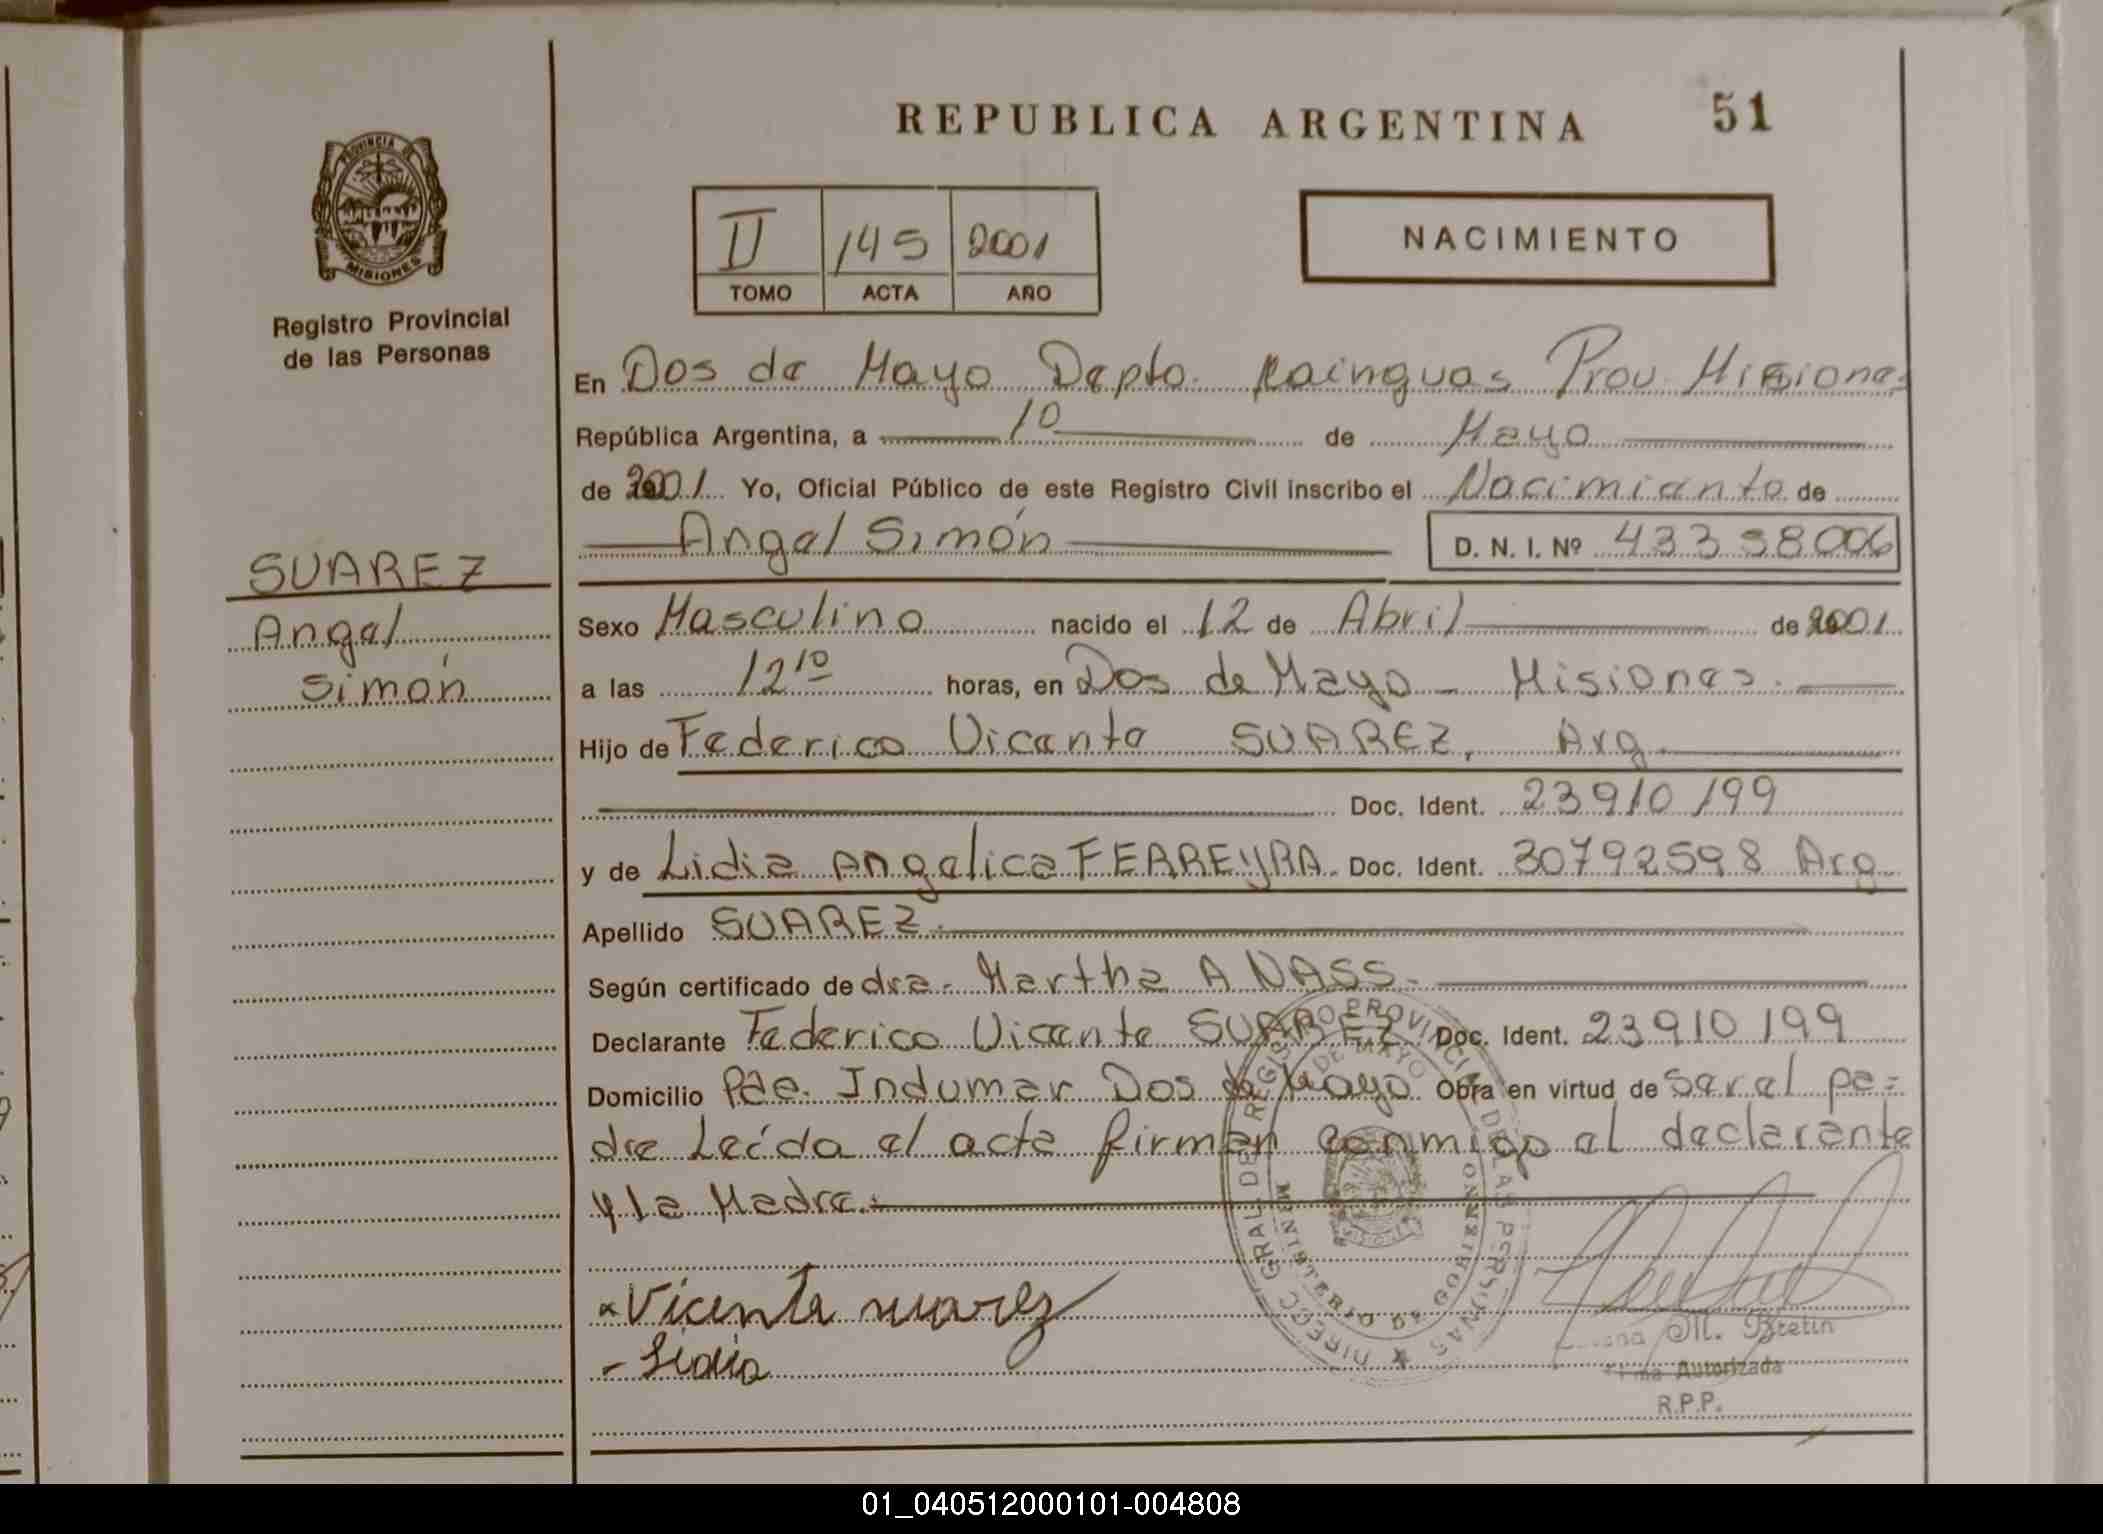 REPUBLICA ARGENTINA
51
PROVINCIA DE
MISIONES
Registro Provincial
de las Personas
II 145 2001
TOMO ACTA AÑO
NACIMIENTO
En Dos de Mayo Depto. Kainguas Prov. Misiones
República Argentina, a 10 de Mayo
de 2001 Yo, Oficial Público de este Registro Civil inscribo el Nacimiento de
Angel Simón
D. N. I. Nº 43358006
SUAREZ
Angel
Simón
Sexo Masculino nacido el 12 de Abril de 2001
a las 12 10 horas, en Dos de Mayo - Misiones.
Hijo de Federico Vicente SUAREZ, Arg
Doc. Ident. 23910199
y de Lidia Angelica FERREYRA. Doc. Ident. 30792598 Arg
Apellido SUAREZ.
Según certificado de dra. Martha A NASS.
Declarante Federico Vicente SUAREZ Doc. Ident. 23910199
Domicilio Pde. Indumar Dos de Mayo Obra en virtud de ser el pa=
dre Leída el acta firman conmigo el declarante
y la Madre.
DIREC. GRAL. DEL REGISTRO PROVINCIAL DE LAS PERSONAS
DE MAYO
MINISTERIO DE GOBIERNO
Vicente suarez
Lidia
M. Bretin
Firma Autorizada
R.P.P.
01_040512000101-004808